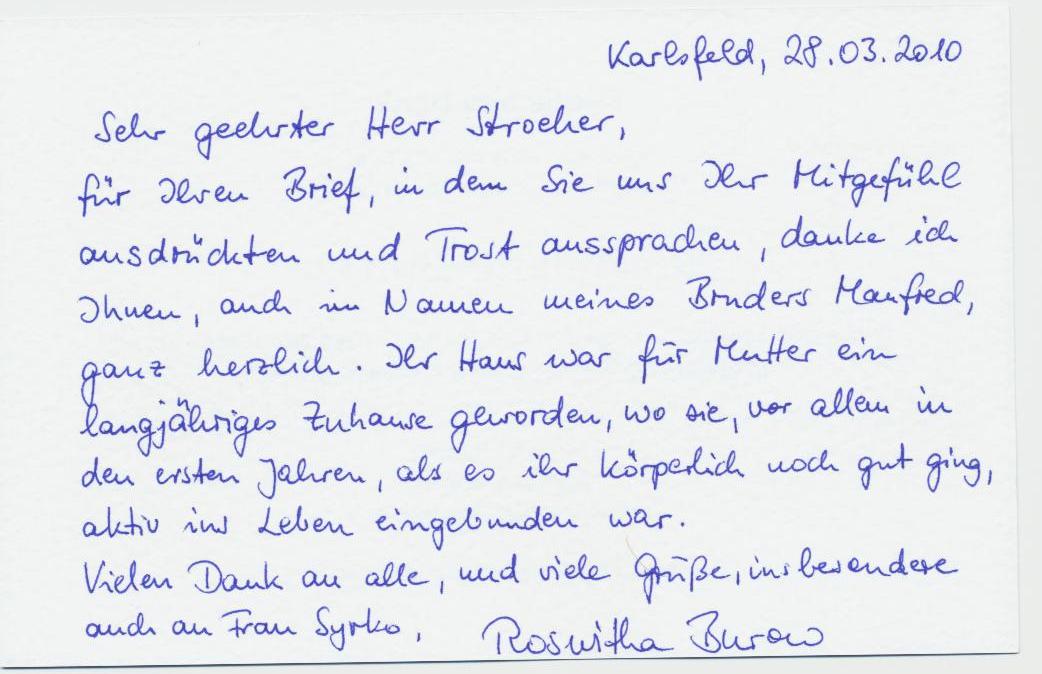 Karlsfeld, 28.03.2010
Sehr geehrter Herr Stroeher,
für Ihren Brief, in dem Sie uns Ihr Mitgefühl
ausdrückten und Trost aussprachen, danke ich
Ihnen, auch im Namen meines Bruders Manfred,
ganz herzlich. Ihr Haus war für Mutter ein
langjähriges Zuhause geworden, wo sie, vor allem in
den ersten Jahren, als es ihr körperlich noch gut ging,
aktiv ins Leben eingebunden war.
Vielen Dank an alle, und viele Grüße, insbesondere
auch an Frau Syrko,
Roswitha Burow